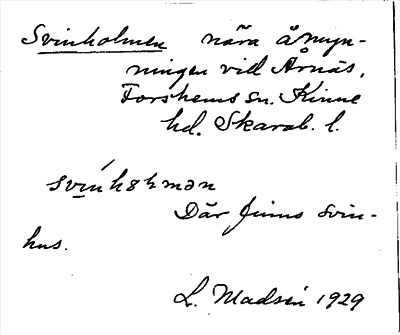 Svinholmen nära åmyn-
ningen vid Årnäs,
Forshems sn. Kinne
hd. Skarab. l.
Där finns svin-
hus.
L. Madsén 1929